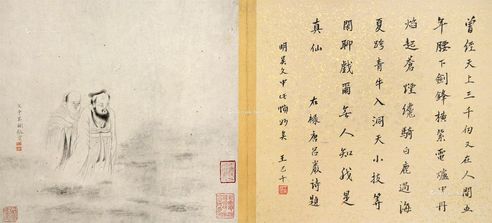 曾經天上三千劫又在人間五
年腰下劍鋒橫紫電爐中丹
焰起蒼煙纔騎白鹿過海
跨青牛入洞天小技等
閒聊戲爾無人知我是
真仙 右錄唐呂巖詩題
明吳文中妙矣 王己千